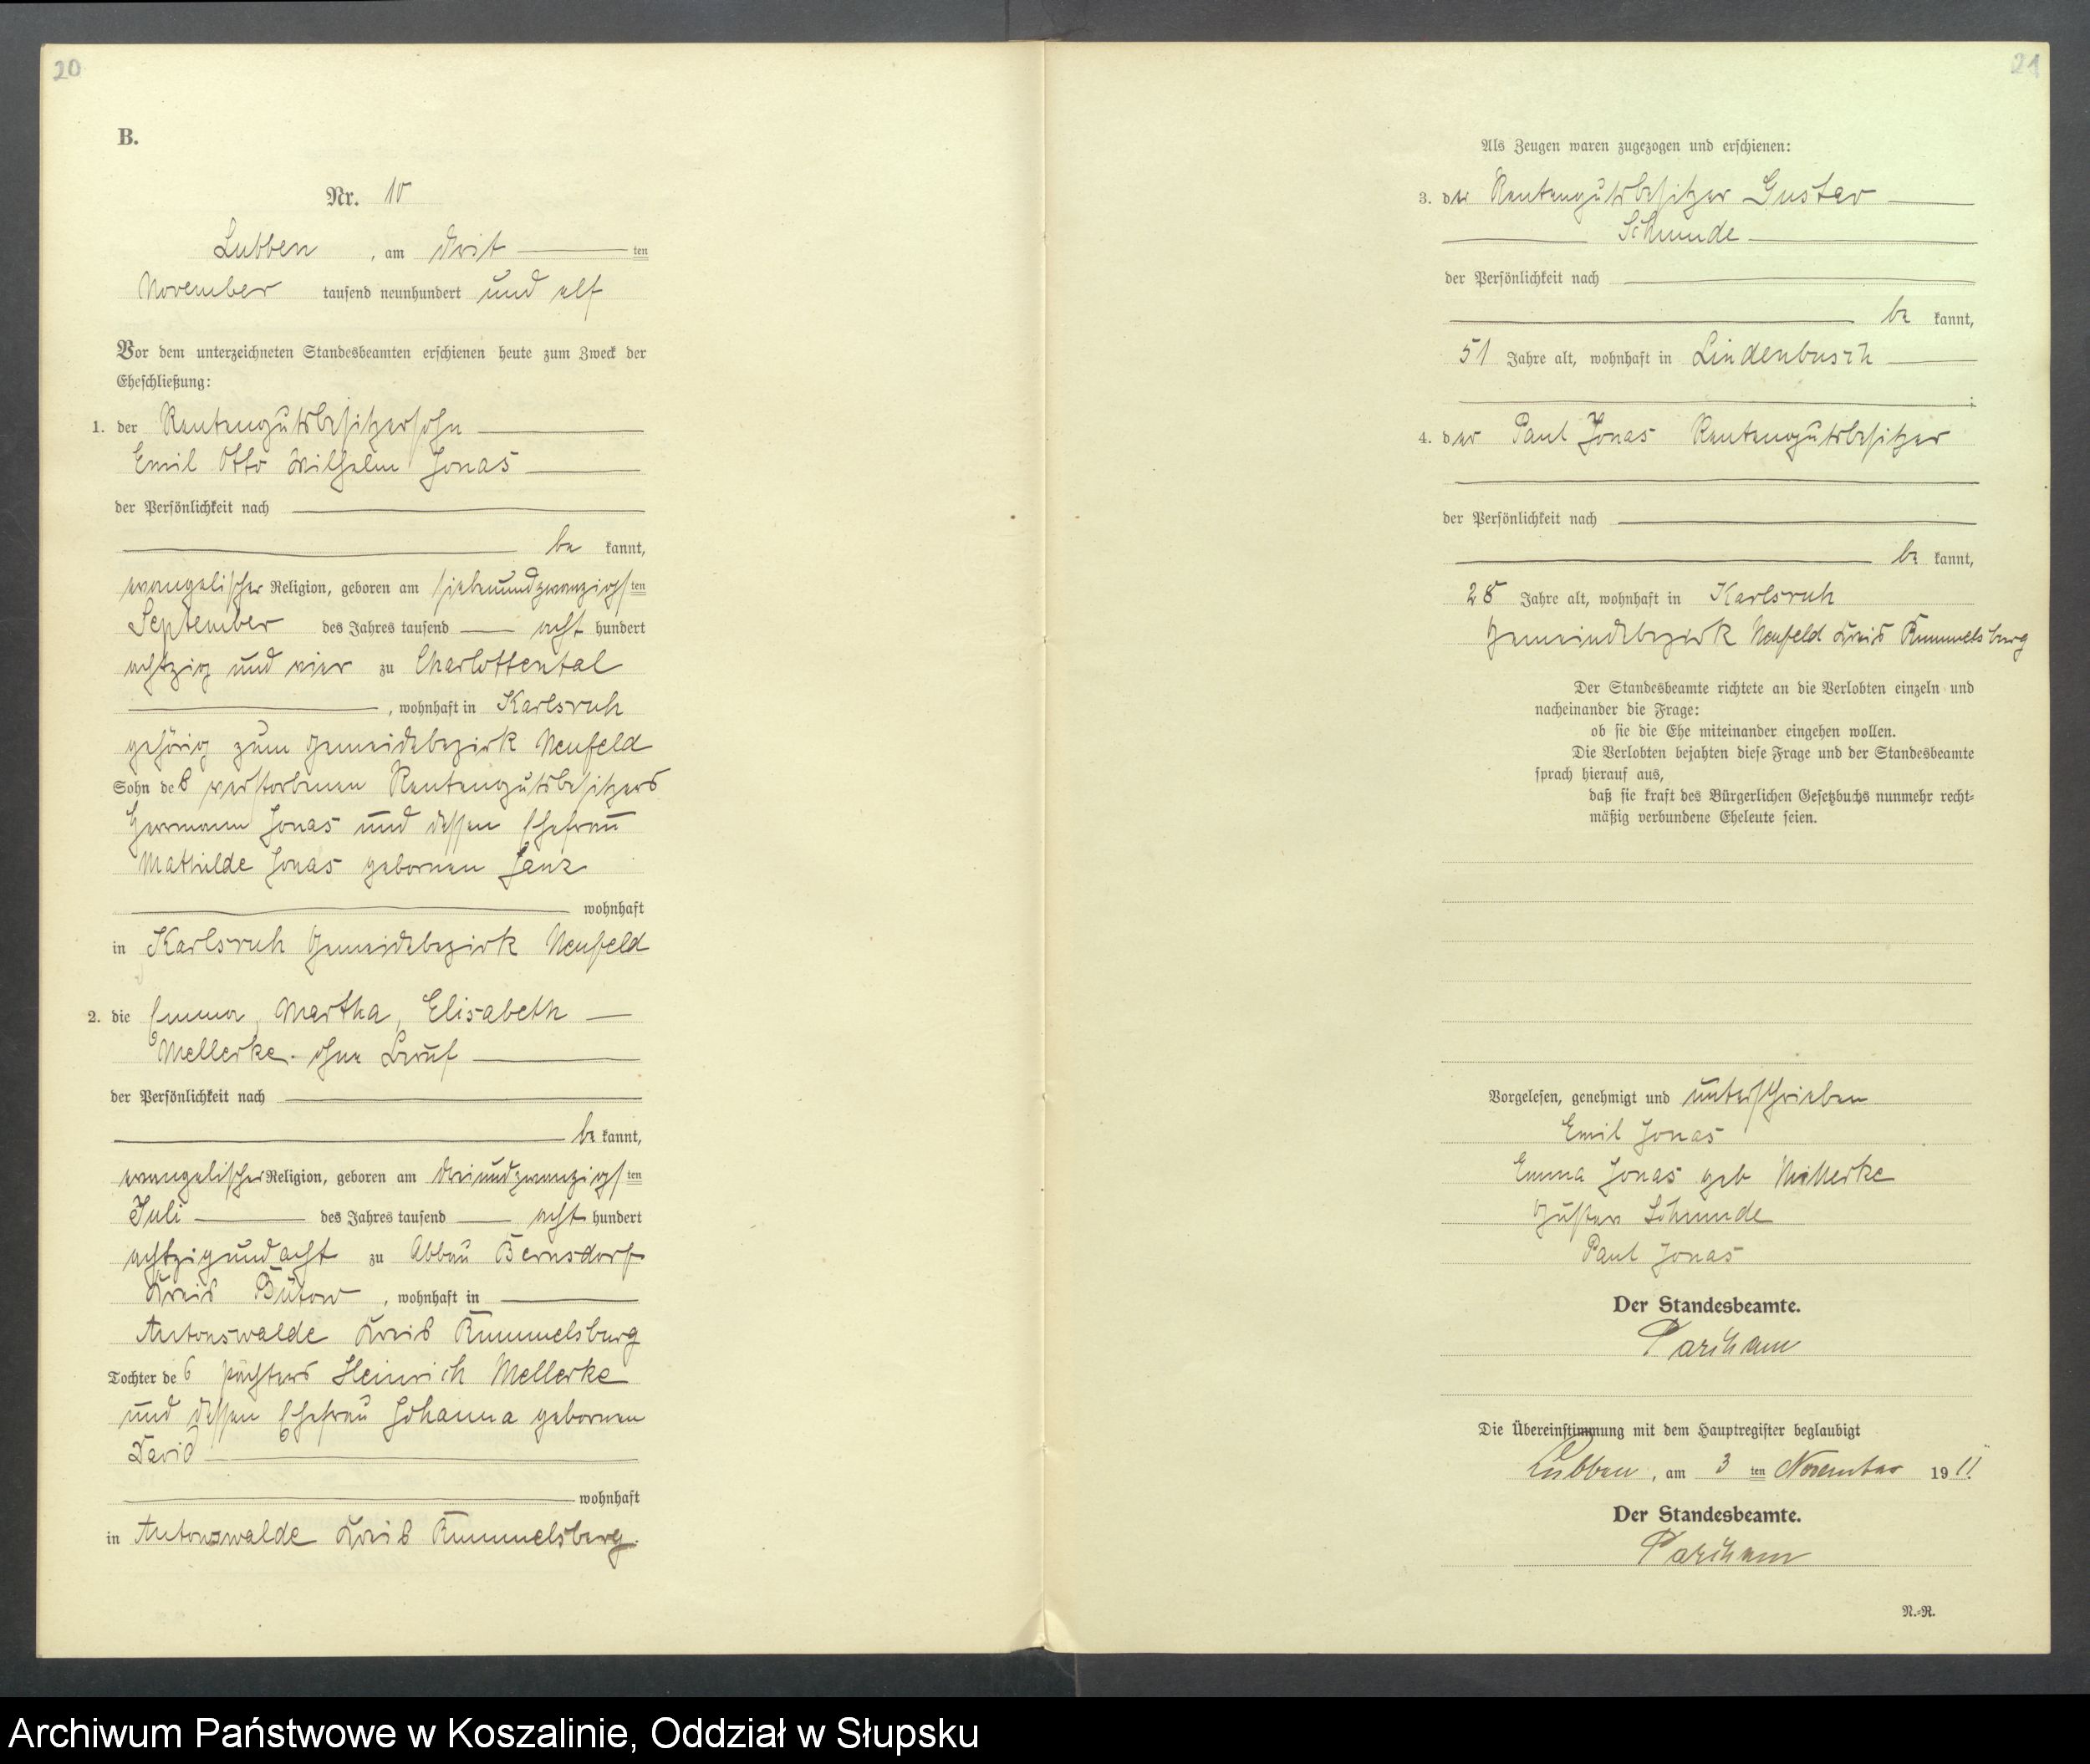 20
B.
Nr. 10
Lubben, am dritten
November tausend neunhundert und elf
Vor dem unterzeichneten Standesbeamten erschienen heute zum Zweck der
Eheschließung:
1. der Rentengutsbesitzersohn
Emil Otto Wilhelm Jonas
der Persönlichkeit nach
be kannt,
evangelischer Religion, geboren am siebenundzwanzigsten
September des Jahres tausend acht hundert
achtzig und vier zu Charlottental
, wohnhaft in Karlsruh
gehörig zum Gemeidebezirk Neufeld
Sohn des verstorbenen Rentengutsbesitzers
Hermann Jonas und dessen Ehefrau
Mathilde Jonas gebornen Janz
wohnhaft
in Karlsruh Gemeidebezirk Neufeld
2. die Emma, Martha, Elisabeth
Mellerke. ohne Beruf
der Persönlichkeit nach
be kannt,
evangelischer Religion, geboren am dreiundzwanzigsten
Juli des Jahres tausend acht hundert
achtzigundacht zu Abbau Bernsdorf
Kreis Bütow, wohnhaft in
Antonswalde Kreis Rummelsburg
Tochter des Pächters Heinrich Mellerke
und dessen Ehefrau Johanna gebornen
David
wohnhaft
in Antonswalde Kreis Rummelsburg.
21
Als Zeugen waren zugezogen und erschienen:
3. der Rentengutsbesitzer Gustav
Schmude
der Persönlichkeit nach
be kannt,
51 Jahre alt, wohnhaft in Lindenbusch
;
4. der Paul Jonas Rentengutsbesitzer
der Persönlichkeit nach
be kannt,
28 Jahre alt, wohnhaft in Karlsruh
Gemeindebezirk Neufeld Kreis Rummelsburg
Der Standesbeamte richtete an die Verlobten einzeln und
nacheinander die Frage:
ob sie die Ehe miteinander eingehen wollen.
Die Verlobten bejahten diese Frage und der Standesbeamte
sprach hierauf aus,
daß sie kraft des Bürgerlichen Gesetzbuchs nunmehr recht-
mäßig verbundene Eheleute seien.
Vorgelesen, genehmigt und unterschrieben
Emil Jonas
Emma Jonas geb Mellerke
Gustav Schmude
Paul Jonas
Der Standesbeamte.
Die Übereinstimmung mit dem Hauptregister beglaubigt
Lubben, am 3 ten November 1911.
Der Standesbeamte.
N.-R.
Archiwum Państwowe w Koszalinie, Oddział w Słupsku